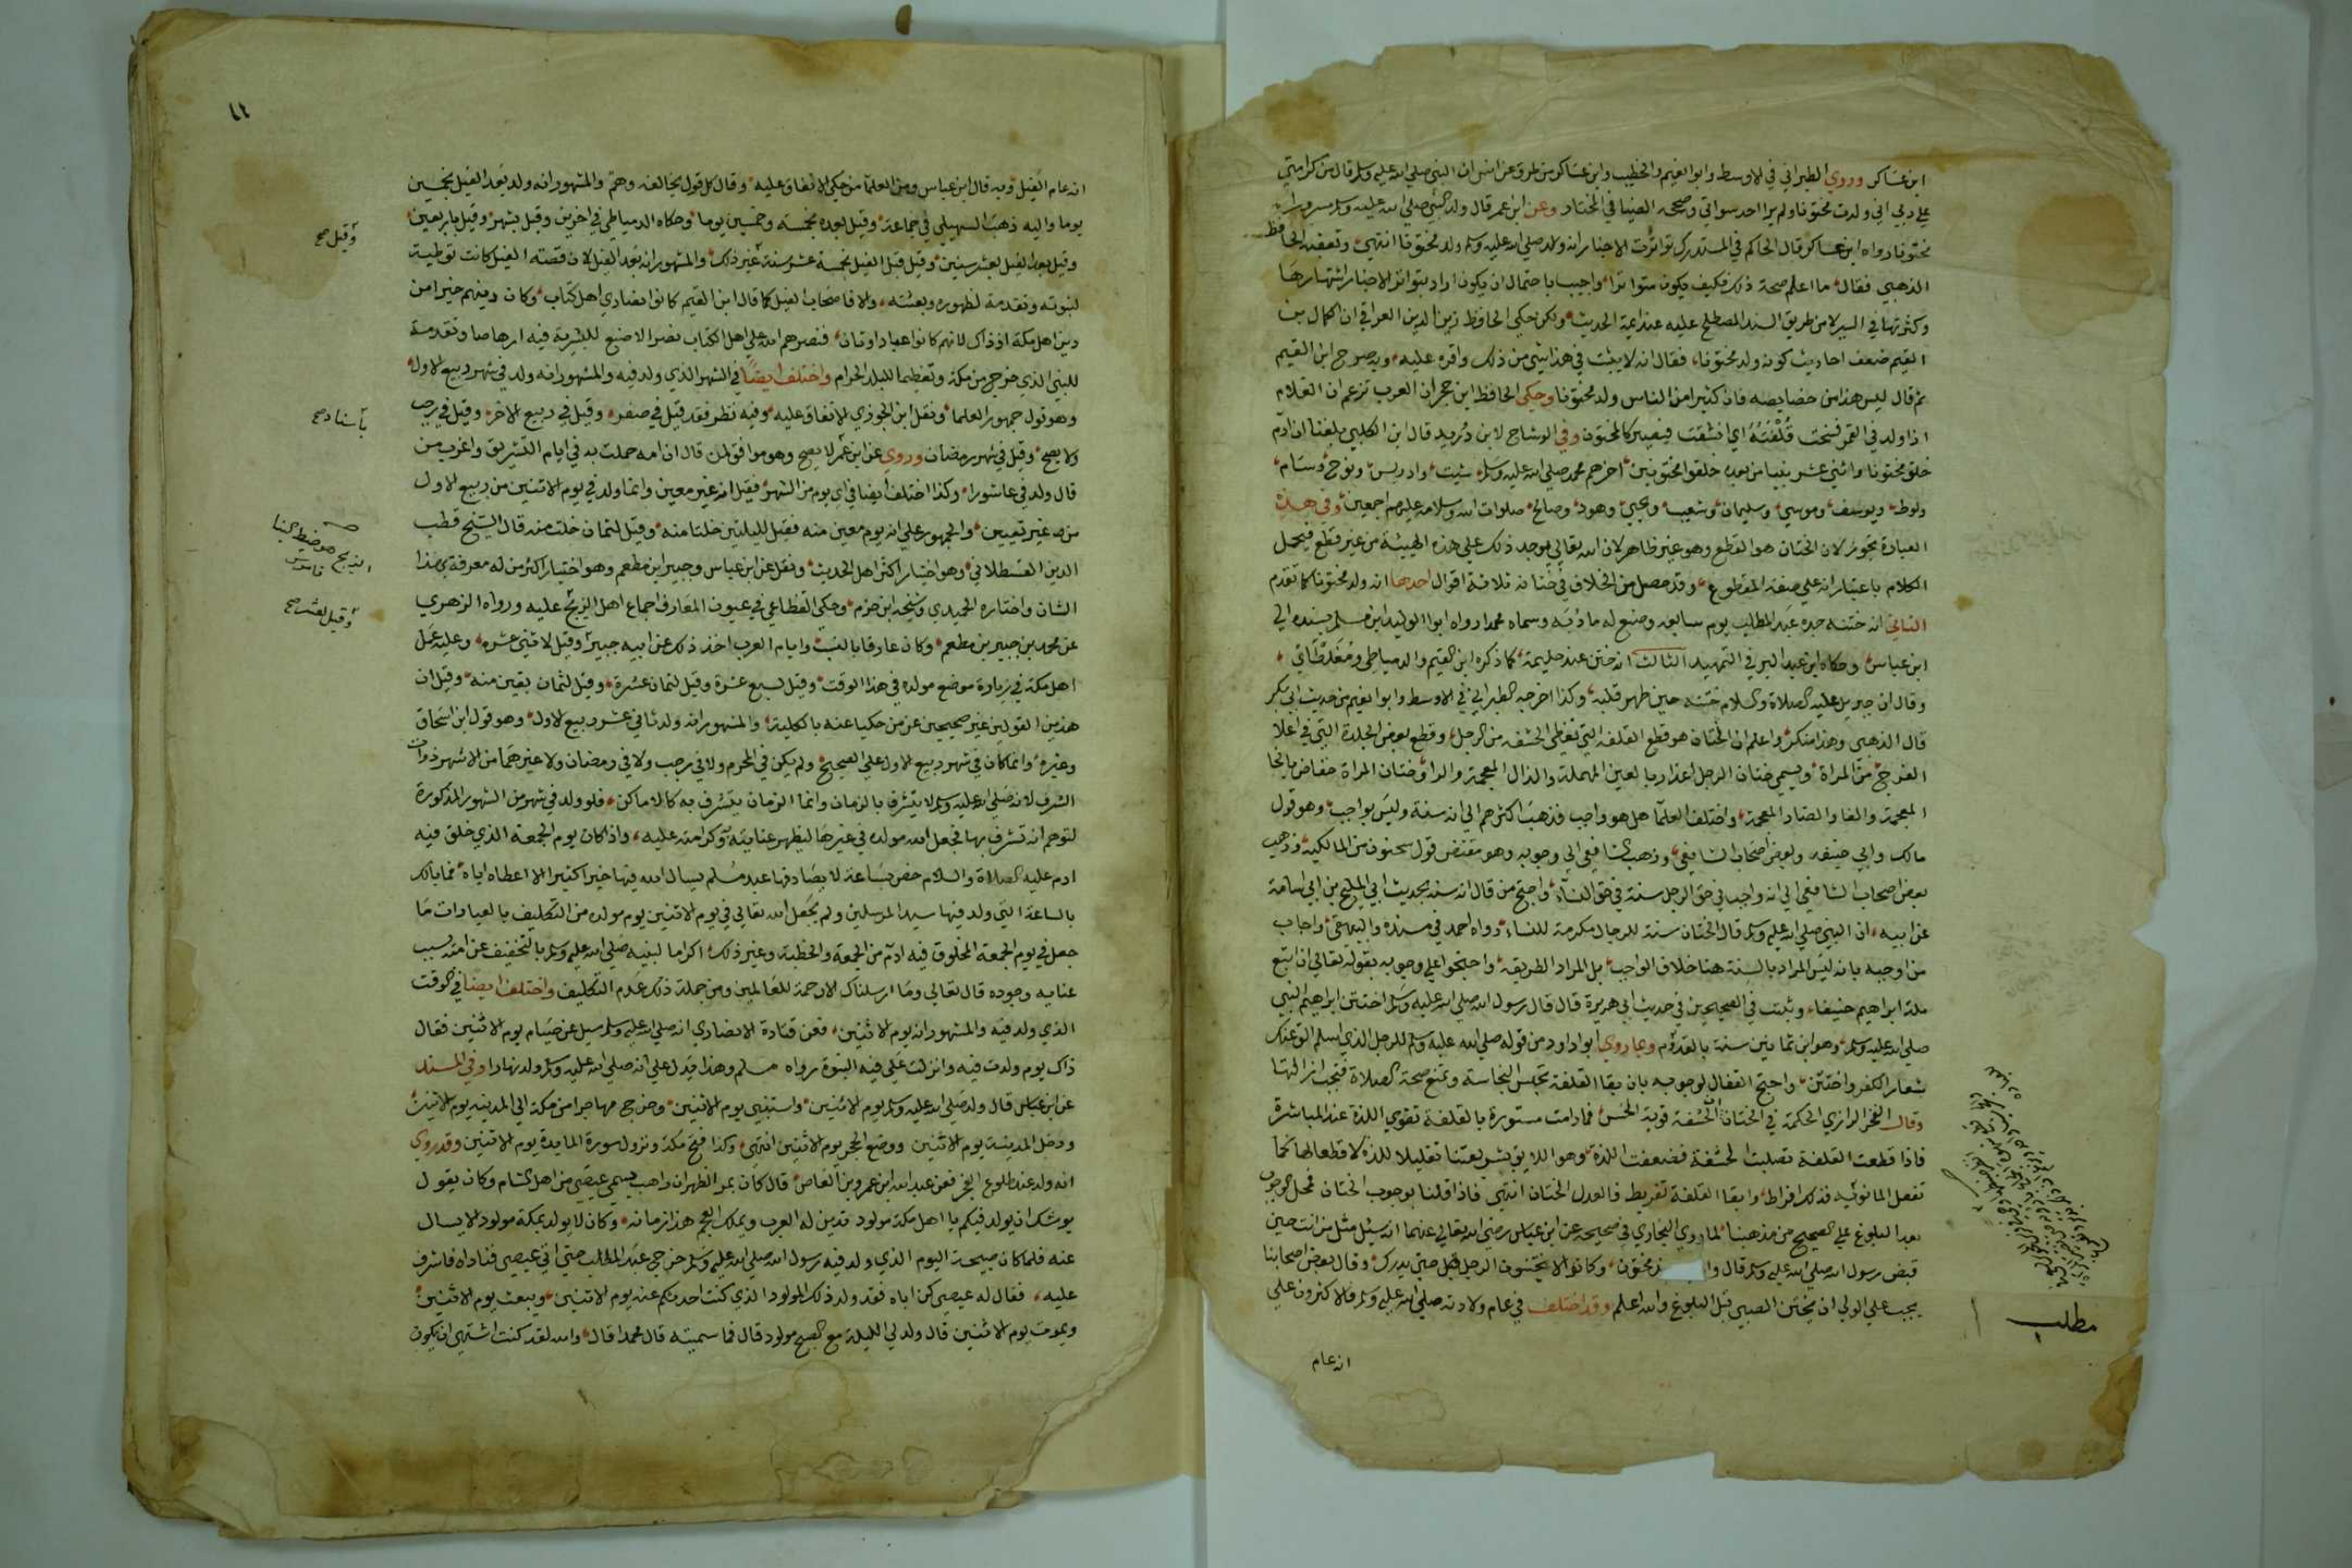 ابن عساكر وروي الطبراني في الاوسط وابوا نعيم والخطيب وابن عساكر من طرق عن انس ان النبي صلى الله عليه وسلم قال من كرامتي
على ربي اني ولدت مختونا ولم ير احد سواتي وصححه الضيا في المختار وعن ابن عمر قال ولد النبي صلى الله عليه وسلم مسرورا
مختونا رواه ابن عساكر قال الحاكم في المستدرك تواترت الاخبار انه ولد صلى الله عليه وسلم ولد مختونا انتهى وتعقبه الحافظ
الذهبي فقال ما اعلم صحة ذلك فكيف يكون متواترا واجيب باحتمال ان يكون اراد بتواتر الاخبار اشتهارها
وكثرتها في السير لا من طريق السند المصطلح عليه عند ايمة الحديث ولكن حكي الحافظ زين الدين العراقي ان الكمال بن
القيم ضعف احاديث كونه ولد مختونا فقال انه لا يثبت في هذا شي من ذلك واقره عليه وبه صرح ابن القيم
ثم قال ليس هذا من خصايصه فان كثيرا من الناس ولد مختونا وحكي الحافظ ابن حجر ان العرب تزعم ان الغلام
اذا ولد في القمر فسخت قُلْفَتُهُ اي انشقت فيصير كالمختون وفي الوشاح لابن دُريد قال ابن الكلبي بلغنا ان ادم
خلق مختونا واثني عشر نبيا من بعده خلقوا مختونين اخرهم محمد صلى الله عليه وسلم شيث وادريس ونوح وسام
ولوط ويوسف وموسي وسليمان وشعيب ويحيي وهود وصالح صلوات الله وسلامه عليهم اجمعين وفي هذه
العبادة تجوز لان الختان هو القطع وهو غير ظاهر لان الله تعالي يوجد ذلك على هذه الهيئة من غير قطع فيحمل
الكلام باعتبار انه على صفة المقطوع وقد حصل من الخلاف في ختانه ثلاثة اقوال احدها انه ولد مختونا كما تقدم
الثاني انه ختنه جده عبد المطلب يوم سابعه وصنع له مادُبَه وسماه محمدا رواه ابوا الوليد ابن مسلم بسنده الى
ابن عباس وحكاه ابن عبد البر في التمهيد الثالث انه ختن عند حليمة كما ذكره ابن القيم والدمياطي ومُغَلطاي
وقال ان جبريل عليه الصلاة والسلام ختنه حين طهر قلبه وكذا اخرجه الطبراني في الاوسط وابوا نعيم من حديث ابي بكر
قال الذهبي وهذا منكر واعلم ان الختان هو قطع القلفة التي تغطي الحشفه من الرجل وقطع بعض الجلدة التي في اعلا
الفرج من المراة ويسمي ختان الرجل اعذار بالعين المهملة والذال المعجمة والراء وختان المراة خفاض بالخا
المعجمة والفا والضاد المعجمة واختلف العلما هل هو واجب فذهب اكثرهم الي انه سنة وليس بواجب وهو قول
مالك وابي حنيفه وبعض اصحاب الشافعي وذهب الشافعي الى وجوبه وهو مقتضى قول سحنون من المالكية وذهب
بعض اصحاب الشافعي الى انه واجب في حق الرجل سنة في حق النساء واحتج من قال انه سنه بحديث ابي المليح بن ابي اسامة
عن ابيه ان النبي صلى الله عليه وسلم قال الختان سنة للرجال مكرمة للنساء رواه احمد في مسنده والبيهقي واجاب
من اوجبه بانه ليس المراد بالسنة هنا خلاف الواجب بل المراد الطريقة واحتجوا على وجوبه بقوله تعالى ان اتبع
ملة ابراهيم حنيفا وثبت في الصحيحين في حديث ابي هريرة قال قال رسول الله صلى الله عليه وسلم اختتن ابراهيم النبي
صلى الله عليه وسلم وهو ابن ثمانين سنة بالقدوم وبما روي ابوا داود من قوله صلى الله عليه وسلم للرجل الذي اسلم الق عنك
شعار الكفر واختتن واحتج القفال لوجوبه بان بقا القلفة تحبس النجاسة وتمنع صحة الصلاة فتجب ازالتها
وقال الفخر الرازي الحكمة في الختان ان الحشفة قوية الحس فما دامت مستورة بالقلفة تقوي اللذة عند المباشرة
فاذا قطعت القلفة تصلبت الحشفة فضعفت اللذة وهو اللايق بشريعتنا تقليلا للذة لا قطعا لها كما
تفعل المانوئيه فذلك افراط وابقا القلفة تفريط فالعدل الختان انتهى فاذا قلنا بوجوب الختان فمحل الوجوب
بعد البلوغ على الصحيح من مذهبنا لما روي البخاري في صحيحه عن ابن عباس رضي الله تعالى عنهما انه سئل مثل من انت حين
قبض رسول الله صلى الله عليه وسلم قال وا مختون وكانوا لا يختنون الرجل حتى يدرك وقال بعض اصحابنا
يجب على الولي ان يختن الصبي قبل البلوغ والله اعلم وقد اختلف في عام ولادته صلى الله عليه وسلم فالاكثرون على
مطلب
انه عام
انه عام الفيل وبه قال ابن عباس ومن العلما من حكي الاتفاق عليه وقال كل قول يخالفه وهم والمشهور انه ولد بعد الفيل بخمسين
يوما واليه ذهب السهيلي في جماعة وقيل بعده بخمسه وخمسين يوما وحكاه الدمياطي في اخرين وقيل بشهر وقيل باربعين
وقيل بعد الفيل بعشر سنين وقيل قبل الفيل بخمسة عشر سنة غير ذلك والمشهور انه بعد الفيل لان قصة الفيل كانت توطية
لنبوته وتقدمة لظهوره وبعثته والا فاصحاب الفيل كما قال ابن القيم كانوا نصاري اهل كتاب وكان دينهم خيرا من
دين اهل مكة اذ ذاك لانهم كانوا عباد اوثان فنصرهم الله على اهل الكتاب نصرا لا صنع للبشر به فيه ارهاصا وتقدمة
للنبي الذي خرج من مكة وتعظيما للبلد الحرام واختلف ايضا في الشهر الذي ولد فيه والمشهور انه ولد في شهر ربيع الاول
وهو قول جمهور العلما ونقل ابن الجوزي الاتفاق عليه وفيه نظر فقد قيل في صفر وقيل في ربيع الاخر وقيل في رجب
ولا يصح وقيل في شهر رمضان وروي عن ابن عمر لا يصح وهو موافق لمن قال ان امه حملت به في ايام التشريق واغرب من
قال ولد في عاشورا وكذا اختلف ايضا في اي يوم من الشهر فقيل انه غير معين وانما ولد في يوم الاثنين من ربيع الاول
من غير تعيين والجمهور على انه يوم معين منه فقيل لليلتين خلتا منه وقيل لثمان خلت منه قال الشيخ قطب
الدين القسطلاني وهو اختيار اكثر اهل الحديث ونقل عن ابن عباس وجبير ابن مطعم وهو اختيار اكثر من له معرفة بهذا
الشان واختاره الحميدي وشيخه ابن حزم وحكي القظاعي في عيون المعارف اجماع اهل الزيج عليه ورواه الزهري
عن محمد بن جبير بن مطعم وكان عارفا بالنسب وايام العرب اخذ ذلك عن ابيه جبير وقيل لاثني عشره وعليه عمل
اهل مكة في زيارة موضع مولده في هذا الوقت وقيل لسبع عشرة وقيل لثمان عشرة وقيل لثمان بقين منه وقيل ان
هذين القولين غير صحيحين عن من حكيا عنه بالكلية والمشهور انه ولد ثاني عشر ربيع الاول وهو قول ابن اسحاق
وغيره وانما كان في شهر ربيع الاول على الصحيح ولم يكن في المحرم ولا في رجب ولا في رمضان ولا غيرهما من الاشهر ذوات
الشرف لانه صلى الله عليه وسلم لا يتشرف بالزمان وانما الزمان يتشرف به كالاماكن فلو ولد في شهر من الشهور المذكورة
لتوهم انه تشرف بها فجعل الله مولده في غيرها ليظهر عنايته وكرامته عليه واذا كان يوم الجمعة الذي خلق فيه
ادم عليه الصلاة والسلام خص بساعة لا يصادفها عبد مسلم يسال الله فيها خيرا كثيرا الا اعطاه اياه فما بالك
بالساعة التي ولد فيها سيد المرسلين ولم يجعل الله تعالى في يوم الاثنين يوم مولده من التكليف بالعبادات ما
جعل في يوم الجمعة المخلوق فيه ادم من الجمعة والخطبة وغير ذلك اكراما لنبيه صلى الله عليه وسلم بالتخفيف عن امته بسبب
عنايه وجوده قال تعالى وما ارسلناك الا رحمة للعالمين ومن جملة ذلك عدم التكليف واختلف ايضا في الوقت
الذي ولد فيه والمشهور انه يوم الاثنين فعن قتادة الانصاري انه صلى الله عليه وسلم سيل عن صيام يوم الاثنين فقال
ذاك يوم ولدت فيه وانزلت علي فيه النبوة رواه مسلم وهذا يدل على انه صلى الله عليه وسلم ولد نهارا وفي المسند
عن ابن عباس قال ولد صلى الله عليه وسلم يوم الاثنين واستنبي يوم الاثنين وخرج مهاجرا من مكة الى المدينه يوم الاثنين
ودخل المدينة يوم الاثنين ووضع الحجر يوم الاثنين انتهى وكذا فتح مكة ونزول سورة المايدة يوم الاثنين وقد روي
انه ولد عند طلوع الفجر فعن عبد الله ابن عمرو بن العاص قال كان بمر الظهران راهب يسمي عيصي من اهل الشام وكان يقول
يوشك ان يولد فيكم يا اهل مكة مولود تدين له العرب ويملك العجم هذا زمانه وكان لا يولد بمكة مولود الا يسال
عنه فلما كان صبيحة اليوم الذي ولد فيه رسول الله صلى الله عليه وسلم خرج عبد المطلب حتى اتى عيصي فناداه فاشرف
عليه فقال له عيصي كن اباه فقد ولد ذلك المولود الذي كنت احدثكم عنه يوم الاثنين ويبعث يوم الاثنين
ويموت يوم الاثنين قال ولد لي الليلة مع الصبح مولود قال فما سميته قال محمدا قال والله لقد كنت اشتهي ان يكون
وقيل صح
باسناد صح
وقيل لعشر صح